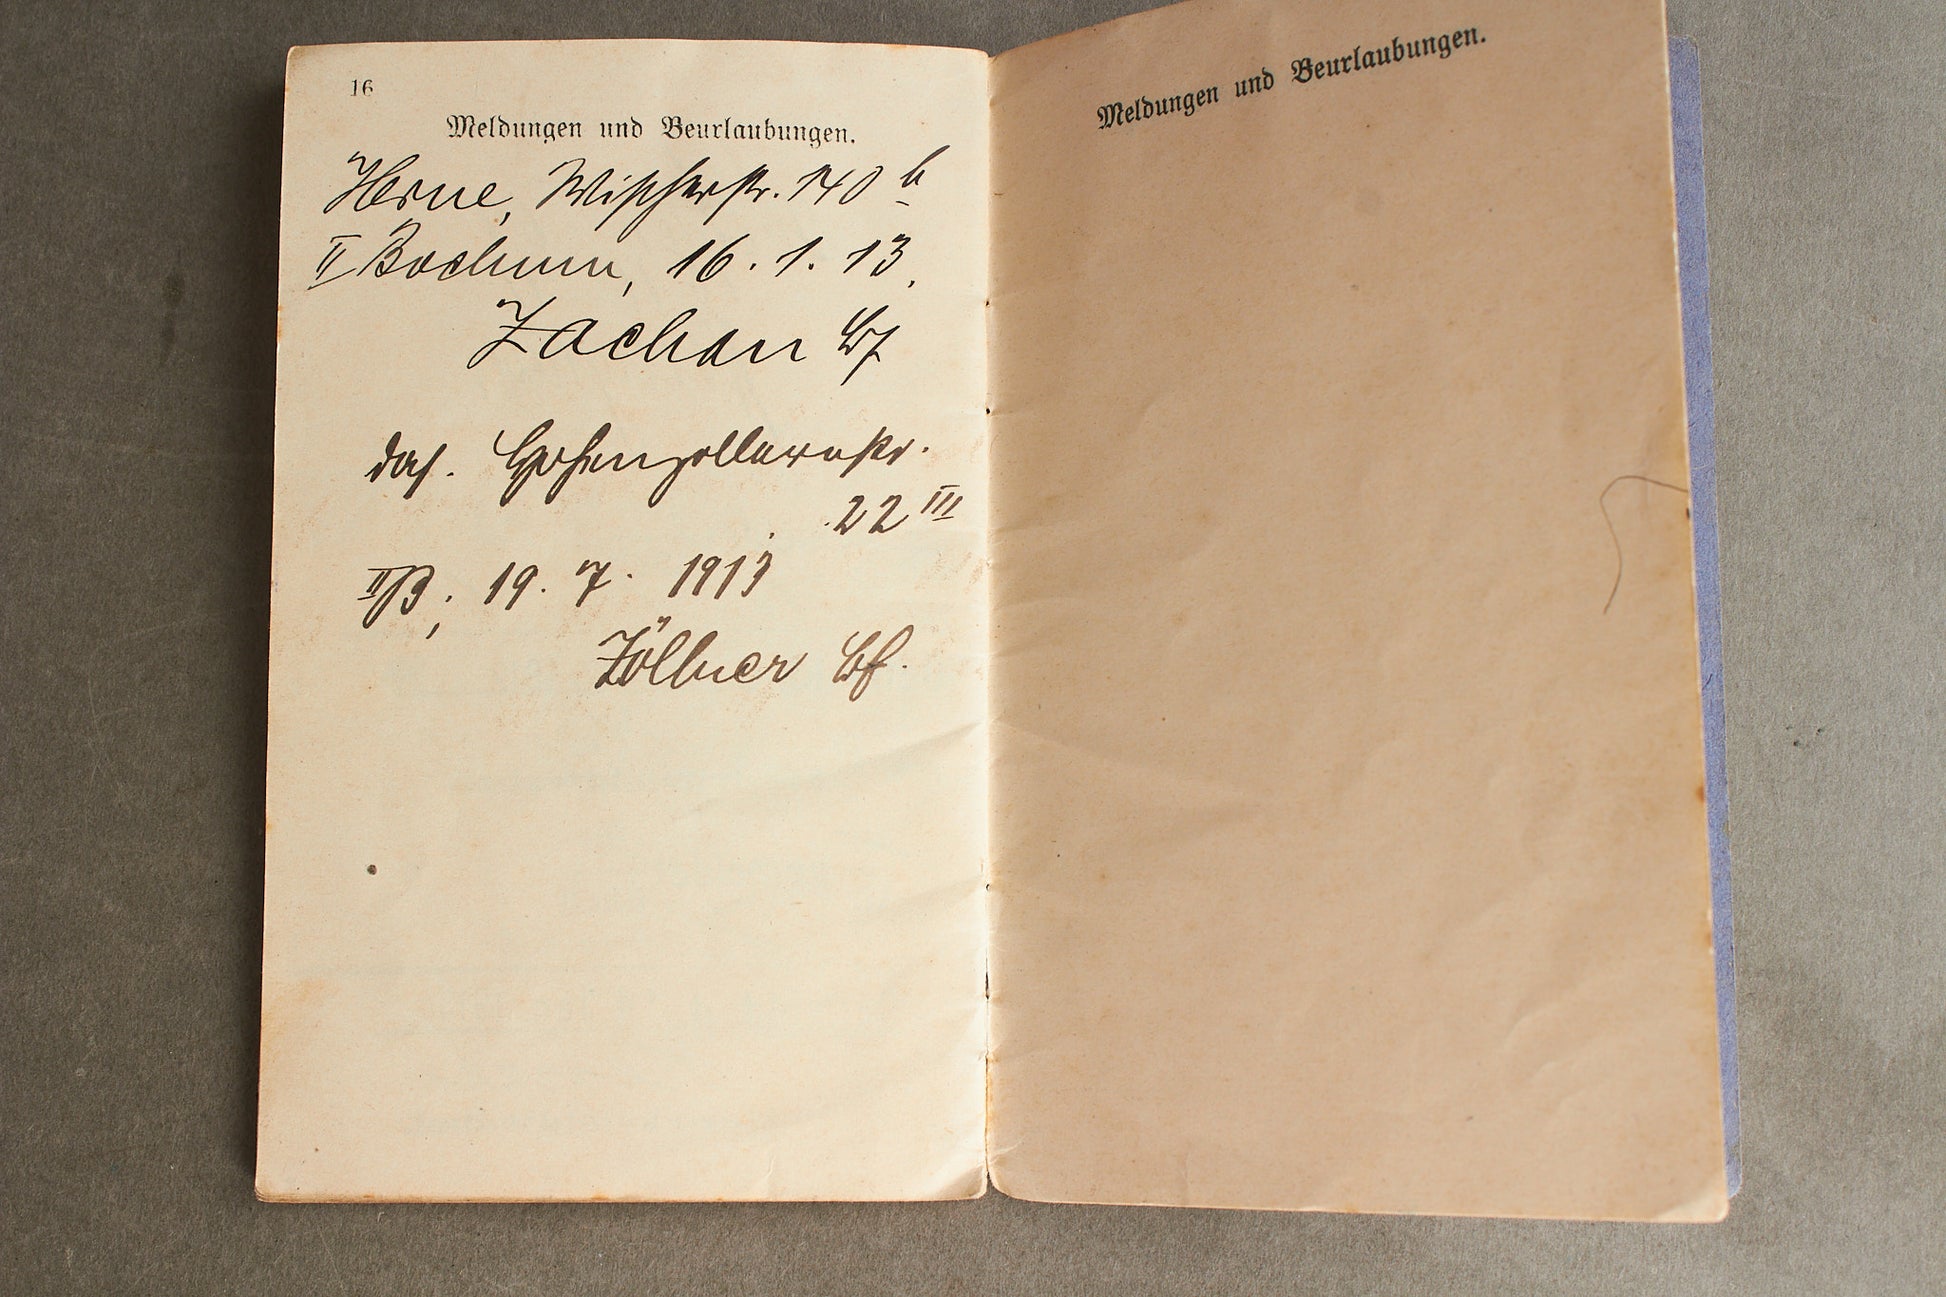 16
Meldungen und Beurlaubungen.
Herne, Wischerstr. 140 b
II Bochum, 16. 1. 13,
Zachan Bf
das. Hohenzollernstr.
22 III
II/B, 19. 7. 1913
Zöllner Bf.
Meldungen und Beurlaubungen.